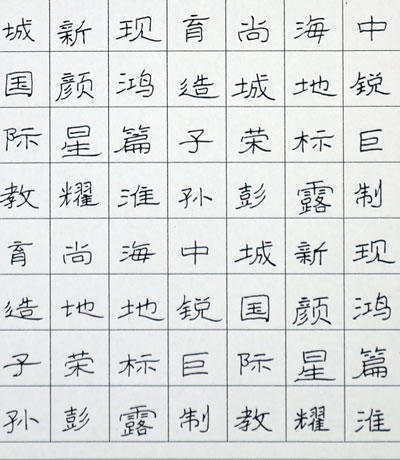 城新现育尚海中
国颜鸿造城地锐
际星篇子荣标巨
教耀淮孙彭露制
育尚海中城新现
造地地锐国颜鸿
子荣标巨际星篇
孙彭露制教耀淮